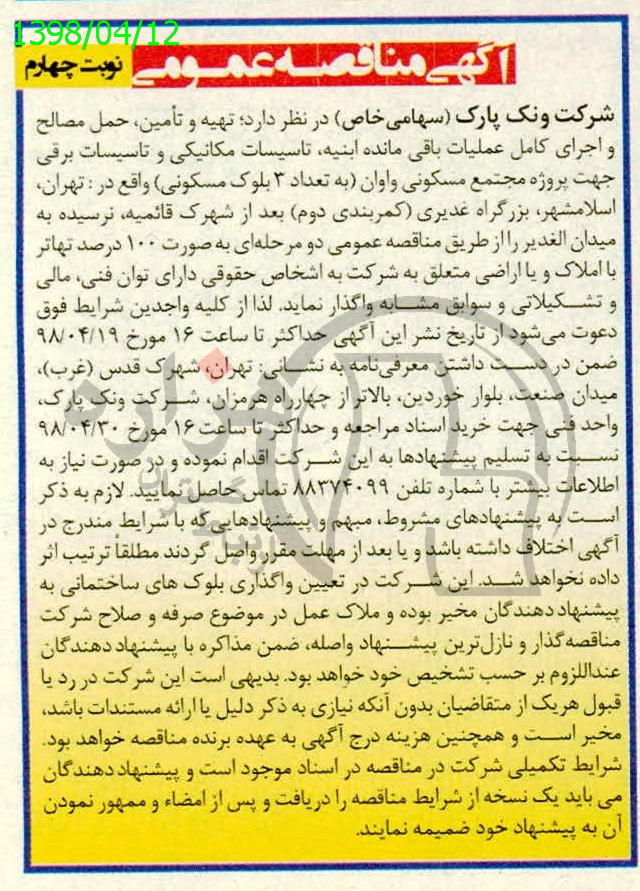 1398/04/12
آگهی مناقصه عمومی
نوبت چهارم
شرکت ونک پارک (سهامی خاص) در نظر دارد؛ تهیه و تأمین، حمل مصالح
و اجرای کامل عملیات باقی مانده ابنیه، تاسیسات مکانیکی و تاسیسات برقی
جهت پروژه مجتمع مسکونی واوان (به تعداد ۳ بلوک مسکونی) واقع در : تهران،
اسلامشهر، بزرگراه غدیری (کمربندی دوم) بعد از شهرک قائمیه، نرسیده به
میدان الغدیر را از طریق مناقصه عمومی دو مرحله‌ای به صورت ۱۰۰ درصد تهاتر
با املاک و یا اراضی متعلق به شرکت به اشخاص حقوقی دارای توان فنی، مالی
و تشکیلاتی و سوابق مشابه واگذار نماید. لذا از کلیه واجدین شرایط فوق
دعوت می‌شود از تاریخ نشر این آگهی حداکثر تا ساعت ۱۶ مورخ ۹۸/۰۴/۱۹
ضمن در دست داشتن معرفی‌نامه به نشانی: تهران، شهرک قدس (غرب)،
میدان صنعت، بلوار خوردین، بالاتر از چهارراه هرمزان، شرکت ونک پارک،
واحد فنی جهت خرید اسناد مراجعه و حداکثر تا ساعت ۱۶ مورخ ۹۸/۰۴/۳۰
نسبت به تسلیم پیشنهادها به این شرکت اقدام نموده و در صورت نیاز به
اطلاعات بیشتر با شماره تلفن ۸۸۳۷۴۰۹۹ تماس حاصل نمایید. لازم به ذکر
است به پیشنهادهای مشروط، مبهم و پیشنهادهایی که با شرایط مندرج در
آگهی اختلاف داشته باشد و یا بعد از مهلت مقرر واصل گردند مطلقاً ترتیب اثر
داده نخواهد شد. این شرکت در تعیین واگذاری بلوک های ساختمانی به
پیشنهاد دهندگان مخیر بوده و ملاک عمل در موضوع صرفه و صلاح شرکت
مناقصه‌گذار و نازل‌ترین پیشنهاد واصله، ضمن مذاکره با پیشنهاد دهندگان
عنداللزوم بر حسب تشخیص خود خواهد بود. بدیهی است این شرکت در رد یا
قبول هریک از متقاضیان بدون آنکه نیازی به ذکر دلیل یا ارائه مستندات باشد،
مخیر است و همچنین هزینه درج آگهی به عهده برنده مناقصه خواهد بود.
شرایط تکمیلی شرکت در مناقصه در اسناد موجود است و پیشنهاد دهندگان
می باید یک نسخه از شرایط مناقصه را دریافت و پس از امضاء و ممهور نمودن
آن به پیشنهاد خود ضمیمه نمایند.